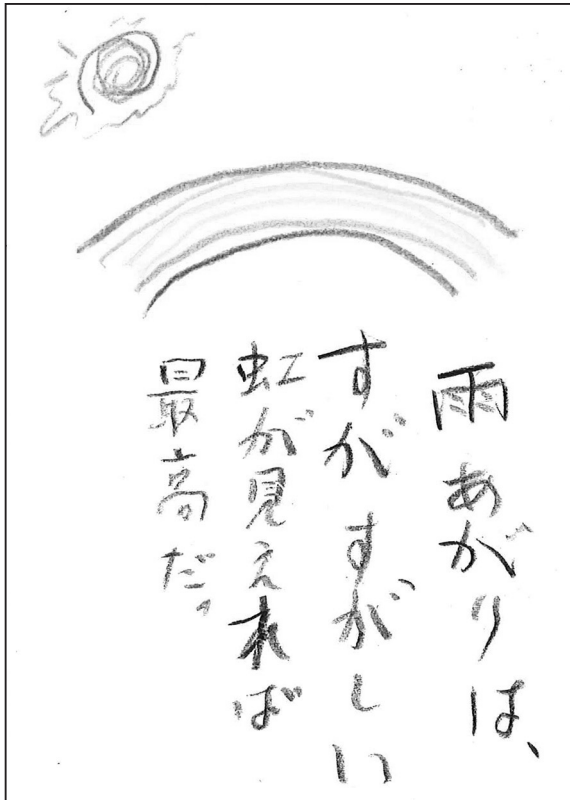 雨あがりは、
すがすがしい
虹が見えれば
最高だ。